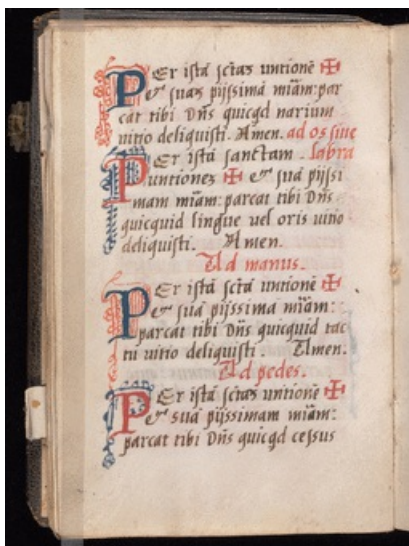 PEr istā sctāʒ untionē ✠
et suāʒ pijssimā miām: par
cat tibi Dn̄s quicqd narium
uitio deliquisti. Amen. ad os siue
PEr istā sanctam. labra
untioneʒ ✠ et suā pijssi
mam miām: parcat tibi Dn̄s
quicquid lingue uel oris uitio
deliquisti. Amen.
Ad manus.
PEr istā sctāʒ untionē ✠
et suā pijssima miām:
parcat tibi Dn̄s quicquid tac
tu uitio deliquisti. Amen.
Ad pedes.
PEr istā sctāʒ untionē ✠
et suā pijssimam miām:
parcat tibi Dn̄s quicqd cessus